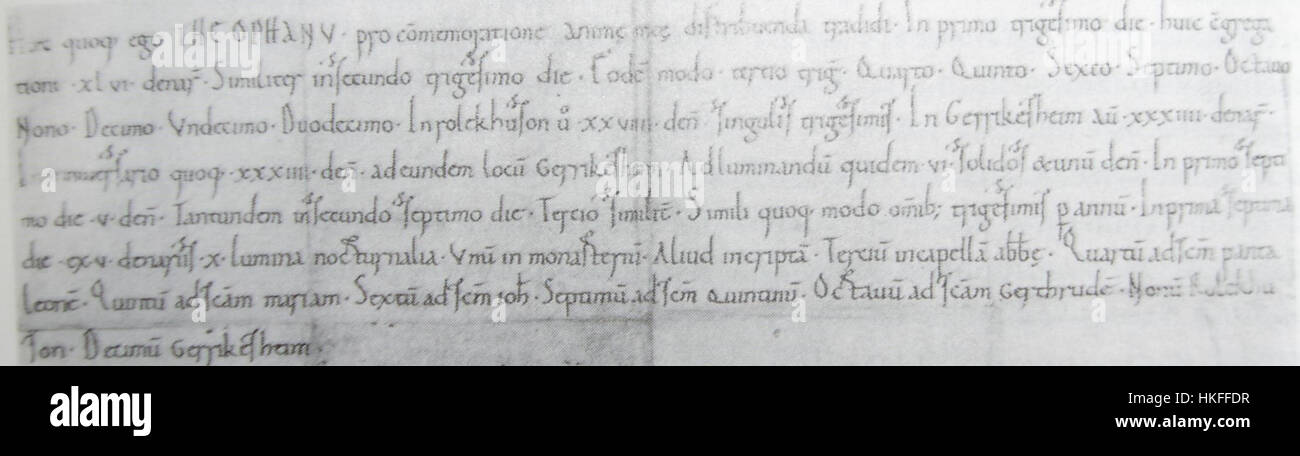 quoq ego THEOPHANV · pro cõmemoratione animę męę distribuenda tradidi · In primo trigesimo die · huic c̄grega
tioni · xl vi · denaꝝ · Similiter in secundo trigesimo die · Eodē modo · tercio trig̃ · Quarto · Quinto · Sexto · Septimo · Octauo
Nono · Decimo · Vndecimo · Duodecimo · In rolckhuson ů · xxviii · deñ · singulis trigesimis · In Gerrikesheim aū · xxxiiii · denaꝝ ·
quoq · xxxiiii · deñ · ad eundem locū Gerrikesheim · Ad luminandū quidem · vi · solidos & unū deñ · In primo septi
mo die · v · deñ · Tantunden in secundo septimo die · Tercio similit̄ · Simili quoq modo omīb; trigesimis p annū · In prima septima
die · & xv · denariis · x · lumina nocturnalia · Vnū in monasterīū · Aliud in criptā · Terciū in capellā abbę · Quartū ad scm̄ panta
leonē · Quintū ad scām mariam · Sextū ad scm̄ ioh̄ · Septimū ad scm̄ quirinū · Octauū ad scām Gerthrudē · Nonū Rolckhu
son · Decimū Gerrikesheim ·
alamy stock photo
HKFFDR
www.alamy.com